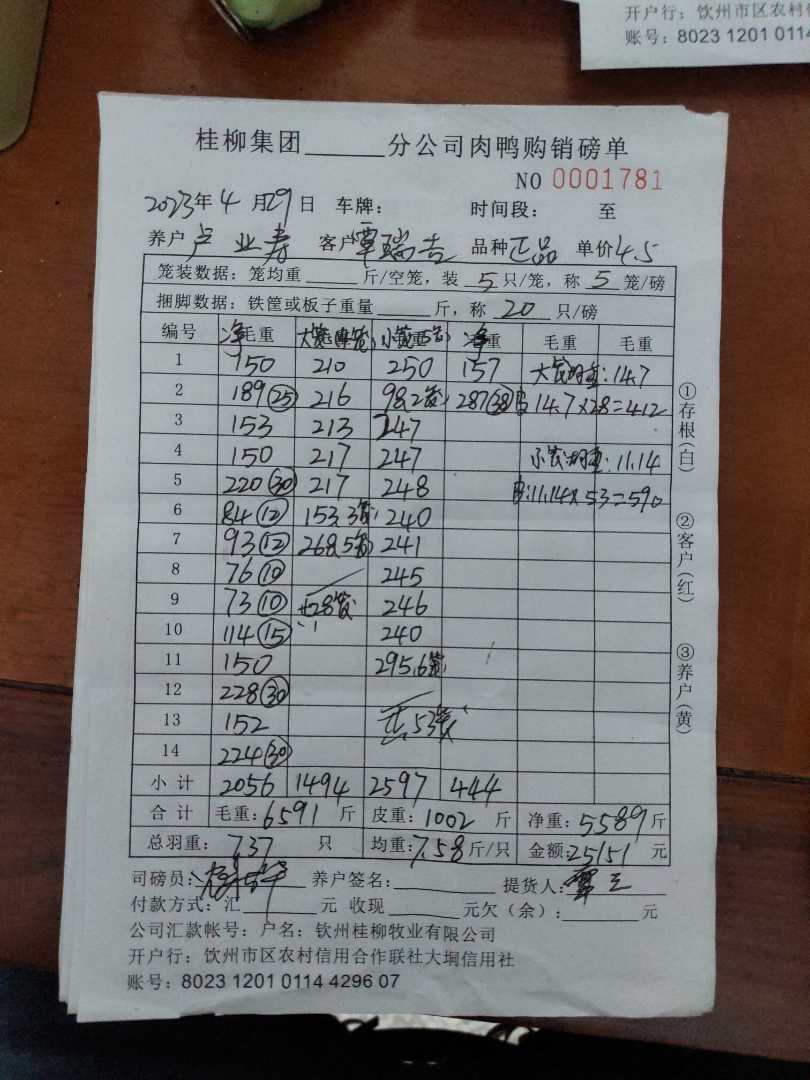 开户行：饮州市区农村
账号：8023 1201 0114
桂柳集团______分公司肉鸭购销磅单
NO 0001781
2023年4月29日 车牌： 时间段： 至
养户 卢业寿 客户 覃瑞吉 品种 正品 单价 4.5
笼装数据：笼均重______斤/空笼，装 5 只/笼，称 5 笼/磅
捆脚数据：铁筐或板子重量______斤，称 20 只/磅
编号 净重 大笼 小笼 净重 毛重 毛重
1 150 210 250 157 大笼 14.7
2 189(25) 216 98,2笼 287(38) 皮14.7×28=412
3 153 213 247
4 150 217 247 小笼 11.14
5 220(30) 217 248 皮:11.14×53=590
6 84(12) 153 3笼 240
7 93(12) 268,5笼 241
8 76(10) 245
9 73(10) 共28笼 246
10 114(15) 240
11 150 295,6笼
12 228(30)
13 152 共53笼
14 224(30)
小计 2056 1494 2597 444
合计 毛重：6591 斤 皮重：1002 斤 净重：5589 斤
总羽重：737 只 均重：7.58 斤/只 金额：25151 元
司磅员： 养户签名：______ 提货人：
付款方式：汇______元 收现______元欠（余）：______元
公司汇款帐号：户名：钦州桂柳牧业有限公司
开户行：饮州市区农村信用合作联社大垌信用社
账号：8023 1201 0114 4296 07
①存根（白）
②客户（红）
③养户（黄）